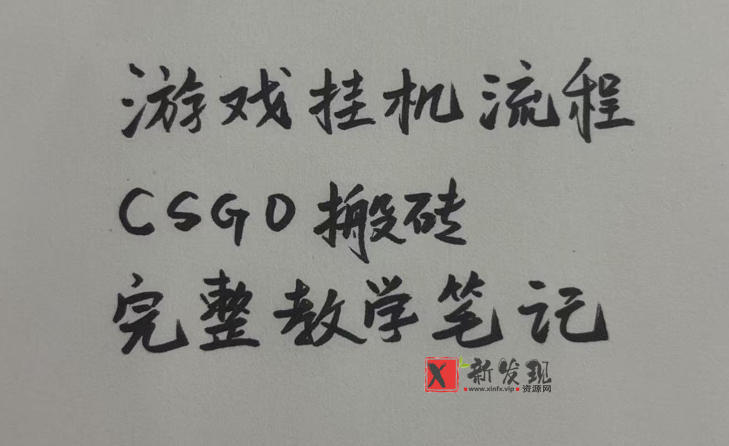 游戏挂机流程
CSGO搬砖
完整教学笔记
X 新发现
www.xinfx.vip 资源网